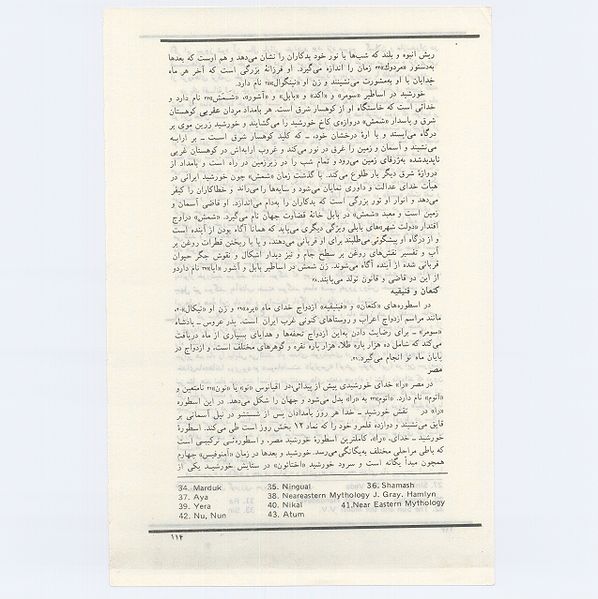 ریش انبوه و بلند که شب‌ها با نور خود بدکاران را نشان می‌دهد و هم اوست که بعدها
به‌دستور «مردوك»۳۴ زمان را اندازه می‌گیرد. او فرزانهٔ بزرگی است که آخر هر ماه
خدایان با او به‌مشورت می‌نشینند و زن او «نینگوال»۳۵ نام دارد.
خورشید در اساطیر «سومر» و «اکد» و «بابل» و «آشور»، «شمش»۳۶ نام دارد و
خدائی است که خاستگاه او از کوهسار شرق است. هر بامداد مردان عقربی کوهستان
شرق و پاسدار «شمش» دروازه‌ی کاخ خورشید را می‌گشایند و خورشید زرین موی بر
درگاه می‌ایستد و با ارهٔ درخشان خود، ـ که کلید کوهسار شرق است ـ بر ارابه
می‌نشیند و آسمان و زمین را غرق در نور می‌کند و غروب ارابه‌اش در کوهستان غربی
ناپدیدشده به‌ژرفای زمین می‌رود و تمام شب را در زیرزمین در راه است و بامداد از
دروازهٔ شرق دیگر بار طلوع می‌کند. با گذشت زمان «شمش» چون خورشید ایرانی در
هیأت خدای عدالت و داوری نمایان می‌شود و سایه‌ها را می‌راند و خطاکاران را کیفر
می‌دهد و انوار او تور بزرگی است که بدکاران را به‌دام می‌اندازد. او قاضی آسمان و
زمین است و معبد «شمش» در بابل خانهٔ قضاوت جهان نام می‌گیرد. «شمش» دراوج
اقتدار «دولت شهر»های بابلی ویژگی دیگری می‌یابد که همانا آگاه بودن از آینده است
و از درگاه او پیشگوئی می‌طلبند برای او قربانی می‌دهند، و یا با ریختن قطرات روغن بر
آب و تفسیر نقش‌های روغن بر سطح جام و نیز دیدار اشکال و نقوش جگر حیوان
قربانی شده از آینده آگاه می‌شوند. زن شمش در اساطیر بابل و آشور «ایا»۳۷ نام داردو
از این دو قاضی و قانون تولد می‌یابند.۳۸
کنعان و فنیقیه
در اسطوره‌های «کنعان» و «فینیقیه» ازدواج خدای ماه «یره»۳۹ و زن او «نیکال»۴۰،
مانند مراسم ازدواج اعراب و روستاهای کنونی غرب ایران است. پدر عروس ـ پادشاه
«سومر» ـ برای رضایت دادن به‌این ازدواج تحفه‌ها و هدایای بسیاری از ماه دریافت
می‌کند که شامل ده هزار باره طلا، هزار باره نقره و گوهرهای مختلف است، و ازدواج در
پایان ماه نو انجام می‌گیرد.۴۱
مصر
در مصر «را» خدای خورشیدی پیش از پیدائی، در اقیانوس «نو» یا «نون»۴۲ نامتعین و
«اتوم» نام دارد. «اتوم»۴۳ به «را» بدل می‌شود و جهان را شکل می‌دهد. در این اسطوره
«را» در نقش خورشید ـ خدا هر روز بامدادان پس از شستشو در نیل آسمانی بر
قایق می‌نشیند و دوازده قلمرو خود را که نماد ۱۲ بخش روز است طی می‌کند. اسطورهٔ
خورشید ـ خدای، «را»، کاملترین اسطورهٔ خورشید مصر، و اسطوره‌ئی ترکیبی است
که باطی مراحلی مختلف به‌یگانگی می‌رسد. خورشید و بعدها در زمان «آمنوفیس» چهارم
همچون مبدأ یگانه است و سرود خورشید «اخناتون» در ستایش خورشید یکی از
34. Marduk 35. Ningual 36. Shamash
37. Aya 38. Neareastern Mythology J. Gray. Hamlyn
39. Yera 40. Nikal 41.Near Eastern Mythology
42. Nu, Nun 43. Atum
۱۱۴